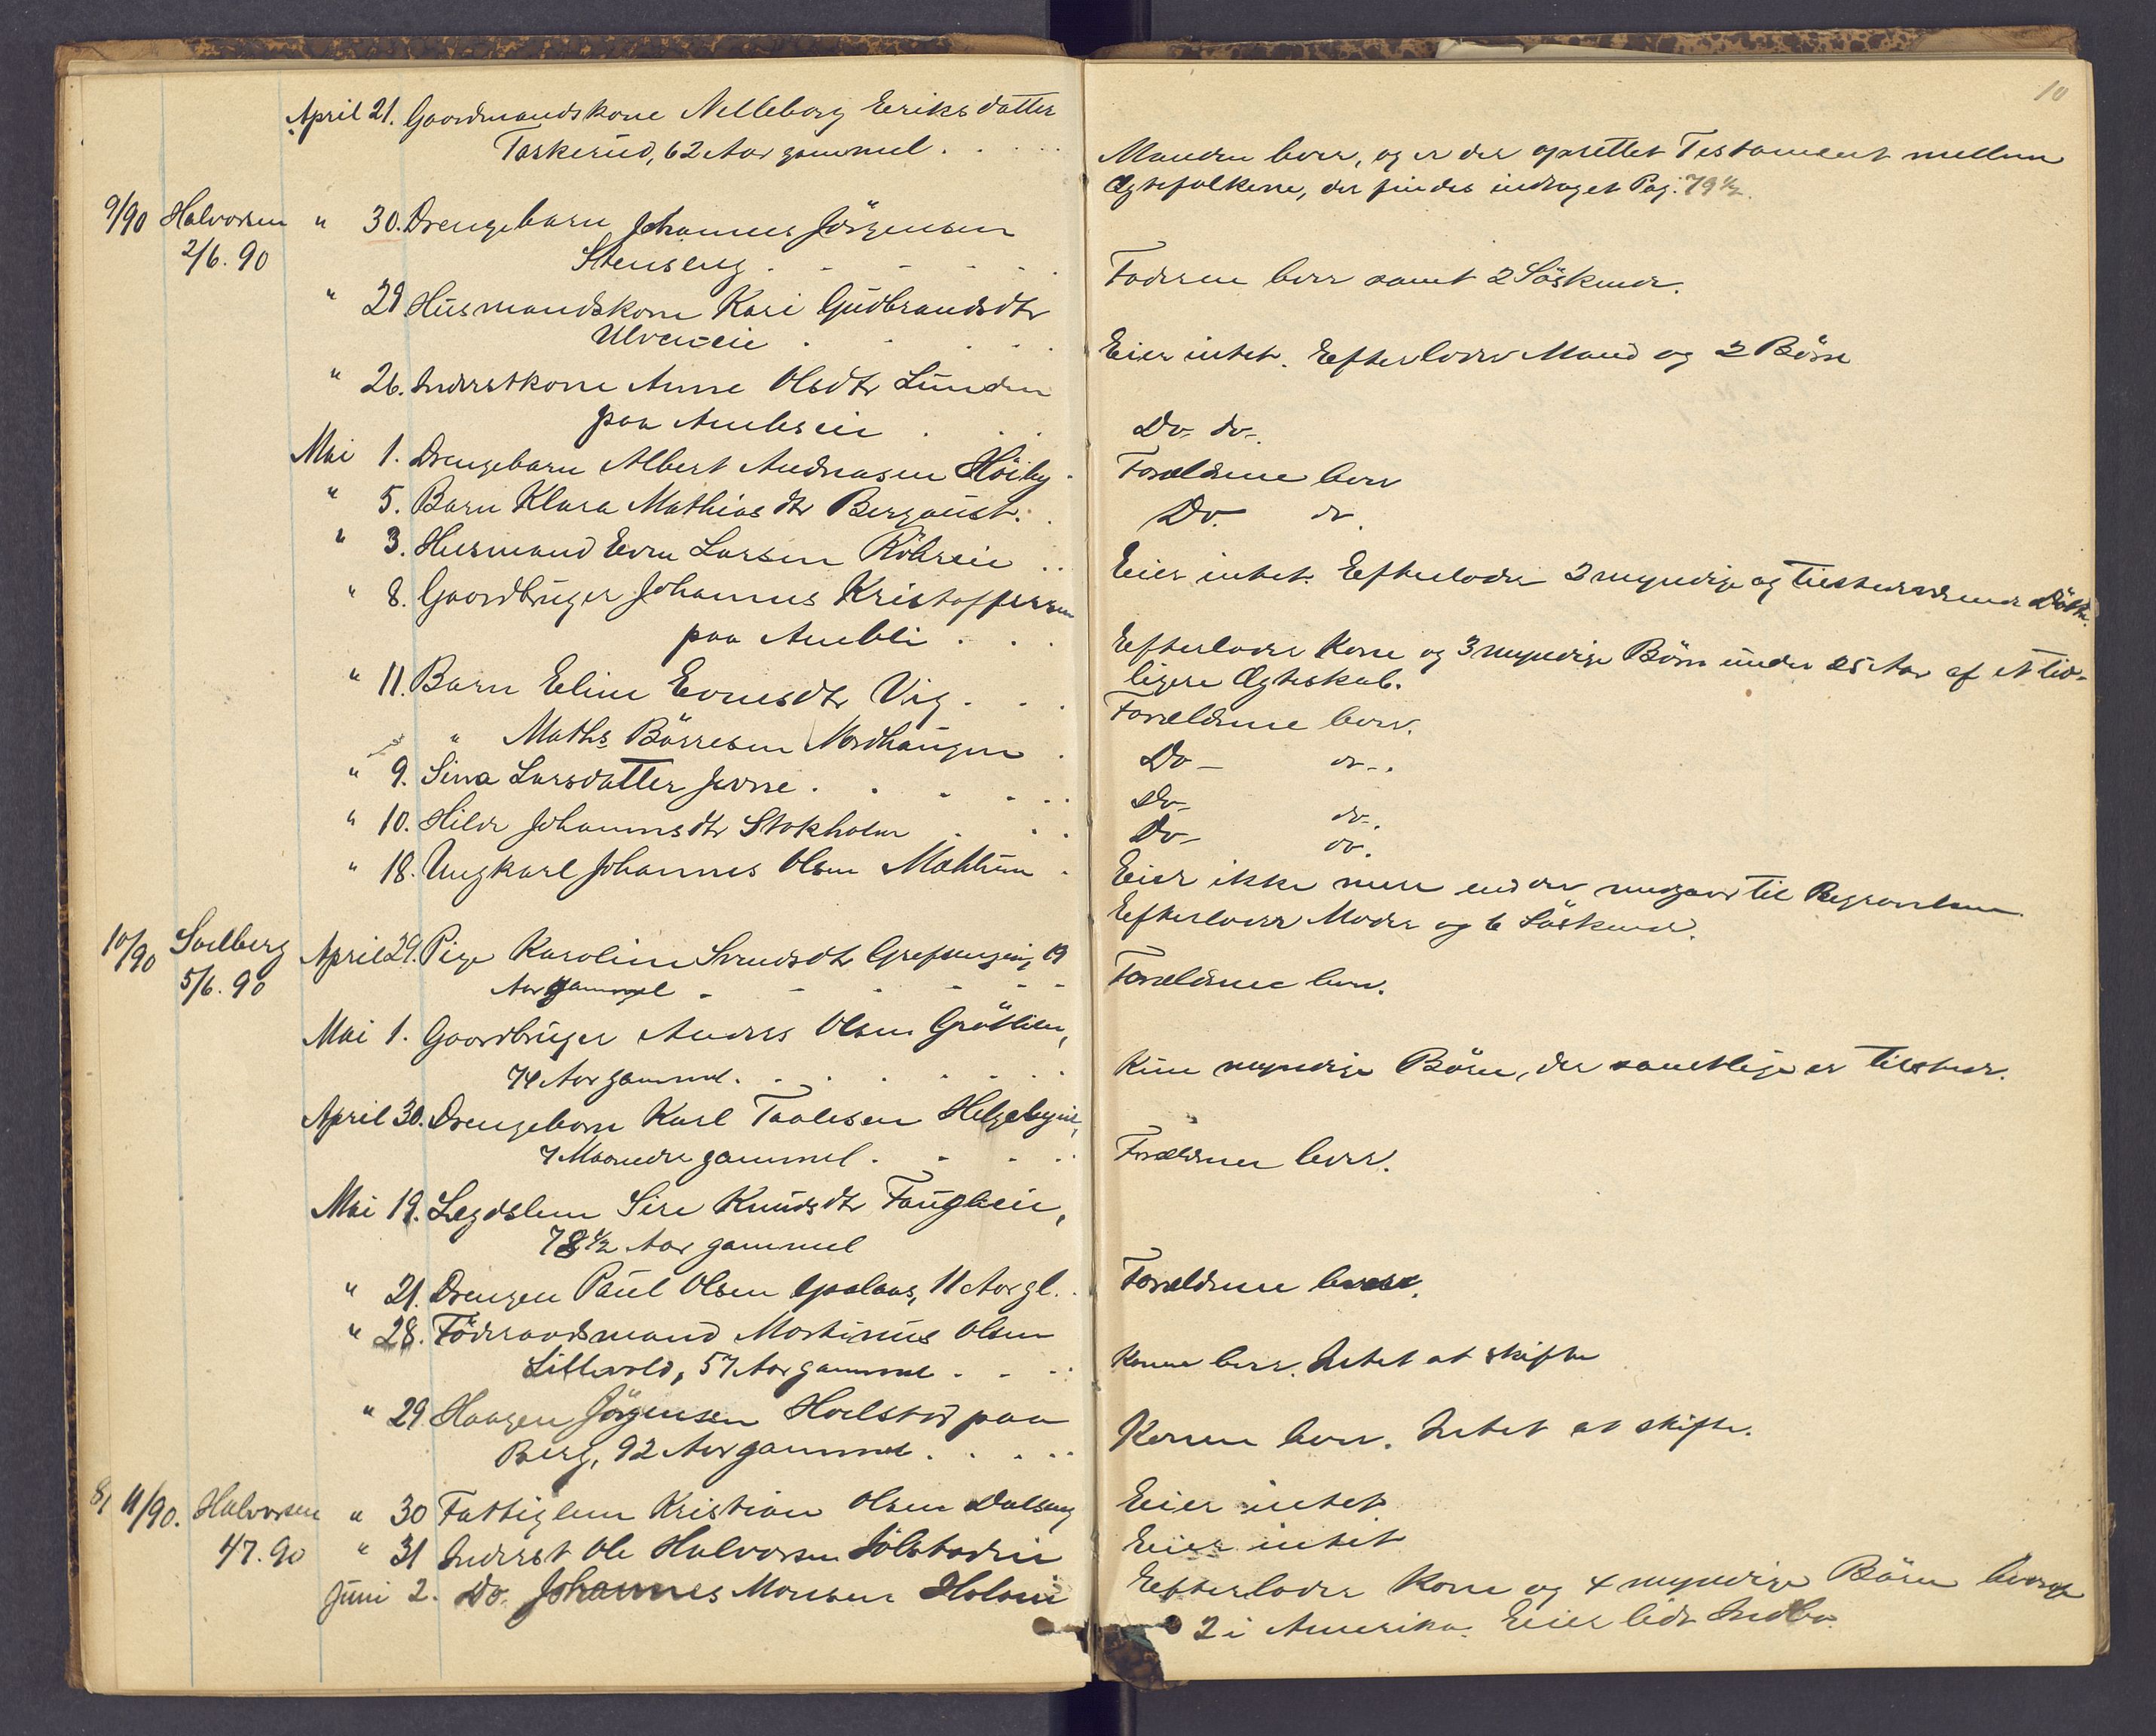 10
April 21. Gaardmandskone Nelleborg Eeriksdatter
Taskerud, 62 Aar gammel . . . .
Manden lever, og er der oprettet Testament mellem
Ægtefolkene, der findes indtaget Pag. 79 1/2.
9/90 Halvorsen " 30. Drengebarn Johannes Jörgensen
2/6. 90 Stenseng . . . .
Faderen lever samt 2 Söskende.
" 29 Husmandskone Kari Gudbrandsdtr
Ulveneie . . . .
Eier intet. Efterlader Mand og 2 Börn
" 26. Inderstkone Anne Olsdtr Lunden
paa Amlieie . . .
Do. do.
Mai 1. Drengebarn Albert Andreasen Höiby .
Forældrene lever
" 5. Barn Klara Mathiasdtr Bergaust .
Do. do.
" 3. Husmand Even Larsen Röhreie . .
Eier intet. Efterlader 2 myndige og tilstedeværende Döttr.
" 8. Gaardbruger Johannes Kristoffersen
paa Amlli . . .
Efterlader Kone og 3 myndige Börn under 25 Aar af et tid-
ligere Ægteskab.
" 11. Barn Eline Evensdtr Vig . . .
Forældrene lever.
" Maths Börresen Nordhaugen .
Do - do - .
" 9. Sina Larsdatter Jevne . . . .
Do - do - .
" 10. Hilda Johannesdtr Stokholm . . .
Do - do.
" 18. Ungkarl Johannes Olsen Mæhlum .
Eier ikke mere end der medgaar til Begravelsen.
Efterlader Moder og 6 Söskende.
10/90 Solberg April 29. Pige Karoline Svendsdtr Grefsengeng, 19
5/6. 90 Aar gammel . . . .
Forældrene lever.
Mai 1. Gaardbruger Anders Olsen Gröttlien,
74 Aar gammel . . . .
Kun myndige Börn, der samtlige er tilstede.
April 30. Drengebarn Karl Taalesen Helgebyeie,
7 Maaneder gammel . . . .
Forældrene lever.
Mai 19. Legdslem Siri Knudsdtr Fauglieie,
78 1/2 Aar gammel
" 21. Drengen Paul Olsen Opalaas, 11 Aar gl. .
Forældrene lever.
" 28. Föderaadsmand Martinus Olsen
Lillevold, 57 Aar gammel . . .
Konen lever. Intet at skifte
" 29. Haagen Jörgensen Hoelstad paa
Berg, 92 Aar gammel . . . .
Konen lever. Intet at skifte.
8/ 11/90. Halvorsen " 30 Fattiglem Kristian Olsen Dalseng
Eier intet.
4/7. 90 " 31 Inderst Ole Halvorsen Sölstadeie
Eier intet
Juni 2. Do. Johannes Monsen Holseie
Efterlader Kone og 4 myndige Börn hvoraf
2 i Amerika. Eier lidt Indbo.